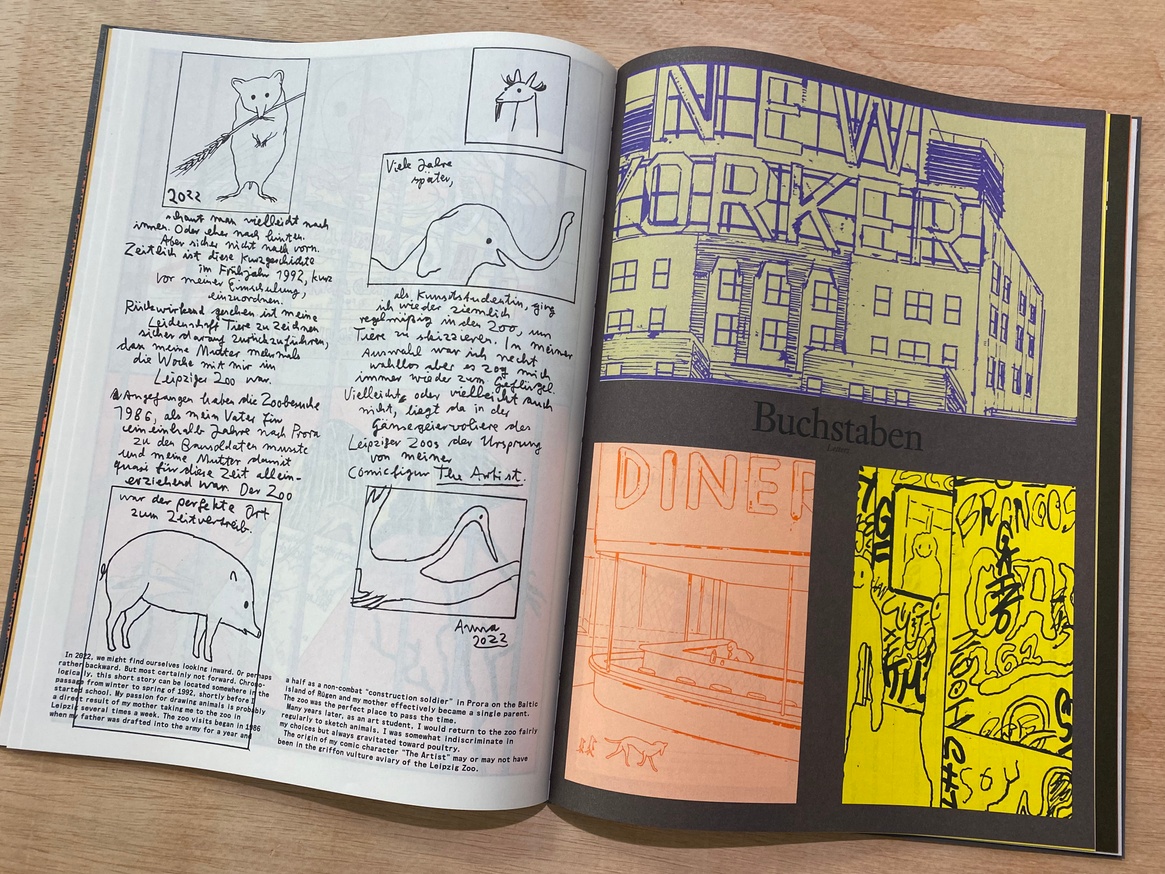 2022
schaut man vielleicht nach
innen. Oder eher nach hinten.
Aber sicher nicht nach vorn.
Zeitlich ist diese Kurzgeschichte
im Frühjahr 1992, kurz
vor meiner Einschulung,
einzuordnen.
Rückwirkend gesehen ist meine
Leidenschaft Tiere zu zeichnen
sicher darauf zurückzuführen,
dass meine Mutter mehrmals
die Woche mit mir im
Leipziger Zoo war.
Angefangen haben die Zoobesuche
1986, als mein Vater für
ein einhalb Jahre nach Prora
zu den Bausoldaten musste
und meine Mutter damit
quasi für diese Zeit allein-
erziehend war. Der Zoo
war der perfekte Ort
zum Zeitvertreib.
Viele Jahre
später,
als Kunststudentin, ging
ich wieder ziemlich
regelmäßig in den Zoo, um
Tiere zu skizzieren. In meiner
Auswahl war ich recht
wahllos aber es zog mich
immer wieder zum Geflügel.
Vielleicht oder vielleicht auch
nicht, liegt da in der
Gänsegeiervoliere des
Leipziger Zoos der Ursprung
von meiner
Comicfigur The Artist.
Anna
2022
In 2022, we might find ourselves looking inward. Or perhaps
rather backward. But most certainly not forward. Chrono-
logically, this short story can be located somewhere in the
passage from winter to spring of 1992, shortly before I
started school. My passion for drawing animals is probably
a direct result of my mother taking me to the zoo in
Leipzig several times a week. The zoo visits began in 1986
when my father was drafted into the army for a year and
a half as a non-combat "construction soldier" in Prora on the Baltic
island of Rügen and my mother effectively became a single parent.
The zoo was the perfect place to pass the time.
Many years later, as an art student, I would return to the zoo fairly
regularly to sketch animals. I was somewhat indiscriminate in
my choices but always gravitated toward poultry.
The origin of my comic character "The Artist" may or may not have
been in the griffon vulture aviary of the Leipzig Zoo.
NEW
YORKER
Buchstaben
Letters
DINER